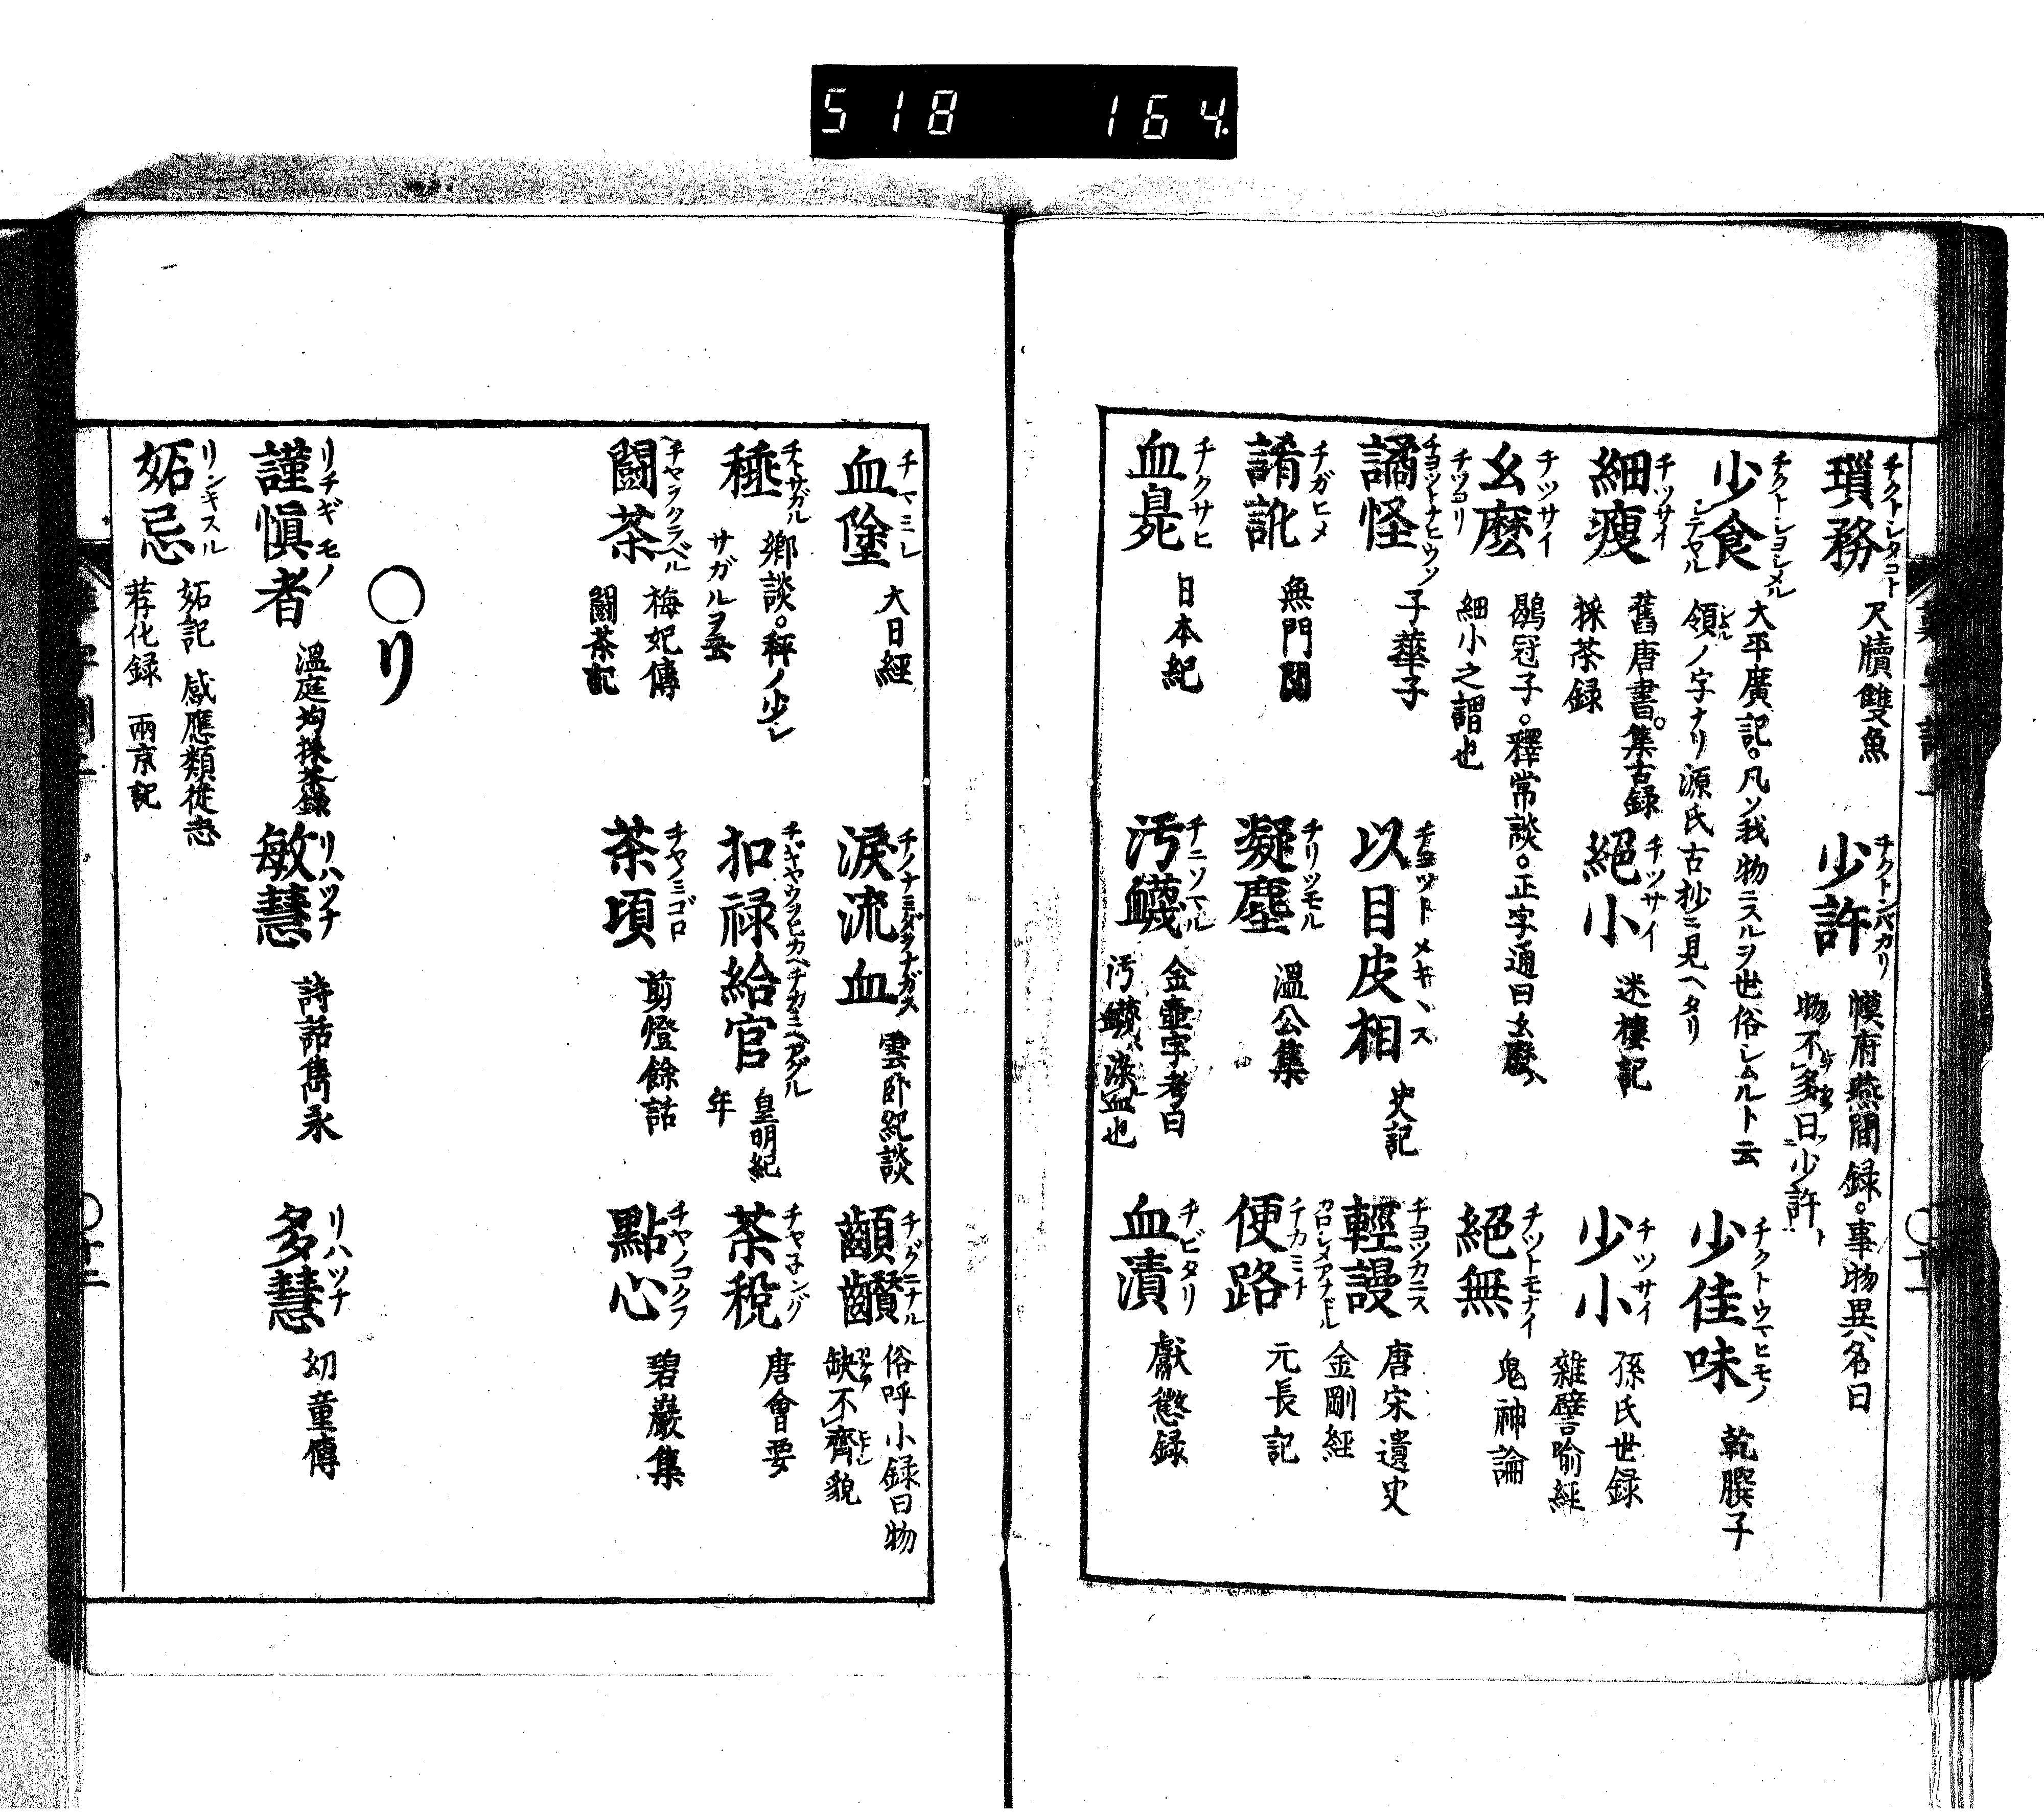 518 164
瑣務 チクトシタコト 尺牘雙魚
少許 チクトンバカリ 幞府燕間録。事物異名曰
物不多曰少許
少食 チクトシヨシメル シテヤル 大平廣記。凡ソ我物ニスルヲ世俗シムルト云
領ノ字ナリ源氏古抄ニ見ヘタリ
少佳味 チクトウマヒモノ 乾䐑子
細瘦 チツサイ 舊唐書。集古録
採茶録
絕小 チツサイ 迷樓記
少小 チツサイ 孫氏世録
雜譬喻経
幺麼 チツサイ 鶡冠子。釋常談。正字通曰幺麼ハ
細小之謂也
絕無 チツトモナイ 鬼神論
譎怪 チヨツトナヒウソ 子華子
以目皮相 チヨツトメキヽス 史記
輕謾 チヨツカニス カロシメアナドル 唐宋遺史
金剛経
誵訛 チガヒメ 無門関
凝塵 チリツモル 溫公集
便路 チカミチ 元長記
血臰 チクサヒ 日本紀
汚衊 チニソマル 金壷字考曰
汚衊ハ染血也
血漬 チビタリ 獻懲録
血塗 チマミレ 大日經
淚流血 チノナミダヲナガス 雲卧紀談
齻齾 チグニナル 俗呼小録曰物
缺不齊貌
䅜 チトサガル 鄉談。秤ノ少シ
サガルヲ云
扣禄給官 皇明紀
年
茶税 チヤ子ング 唐會要
闘茶 チヤヲクラベル 梅妃傳
闘茶記
茶頃 チヤノミゴロ 剪燈餘話
點心 チヤノコクフ 碧巖集
〇リ
謹愼者 リチギモノ 溫庭均採茶録
敏慧 リハツナ 詩話雋永
多慧 リハツナ 幼童傳
妬忌 リンキスル 妬記 感應類從志
荐化録 兩京記